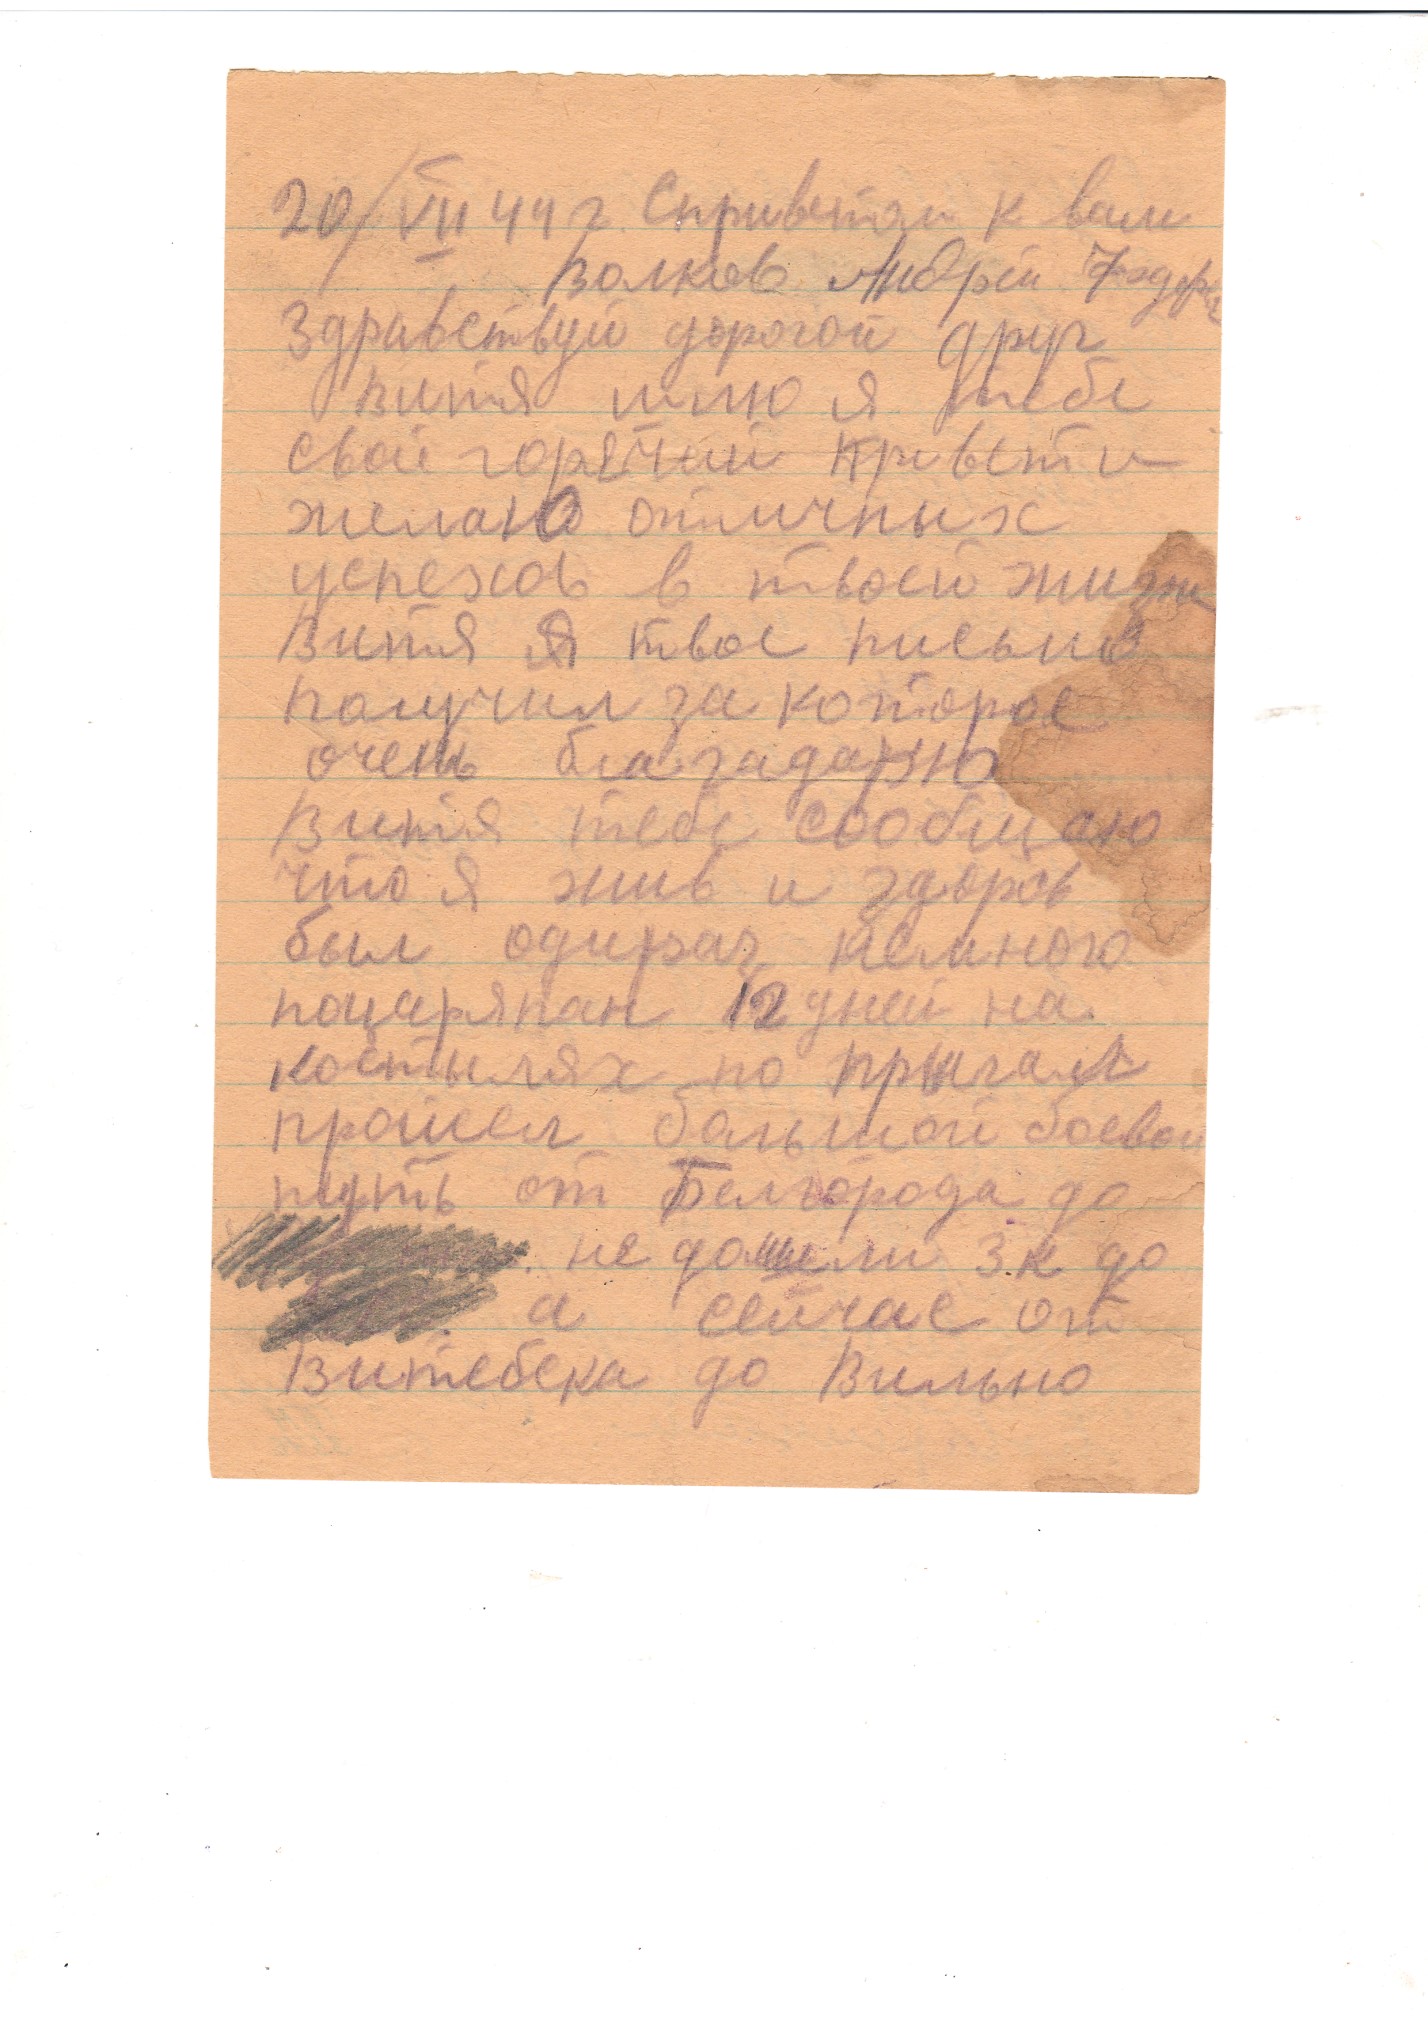 20/VII 44 г. Сприветом к вам
Волков Андрей
Здравствуй дорогой друг
Витя шлю я тебе
свой горячий привет и
желаю отличных
успехов в твоей жизни
Витя Я твое письмо
получил за которое
очень благадарю
Витя тебе сообщаю
что я жив и здоров
был один раз немного
поцаряпан 12 дней на
костылях по прыгал
прошел большой боевой
путь от Белгорода до
не дошели 3 к до
а сейчас от
Витебска до Вильно